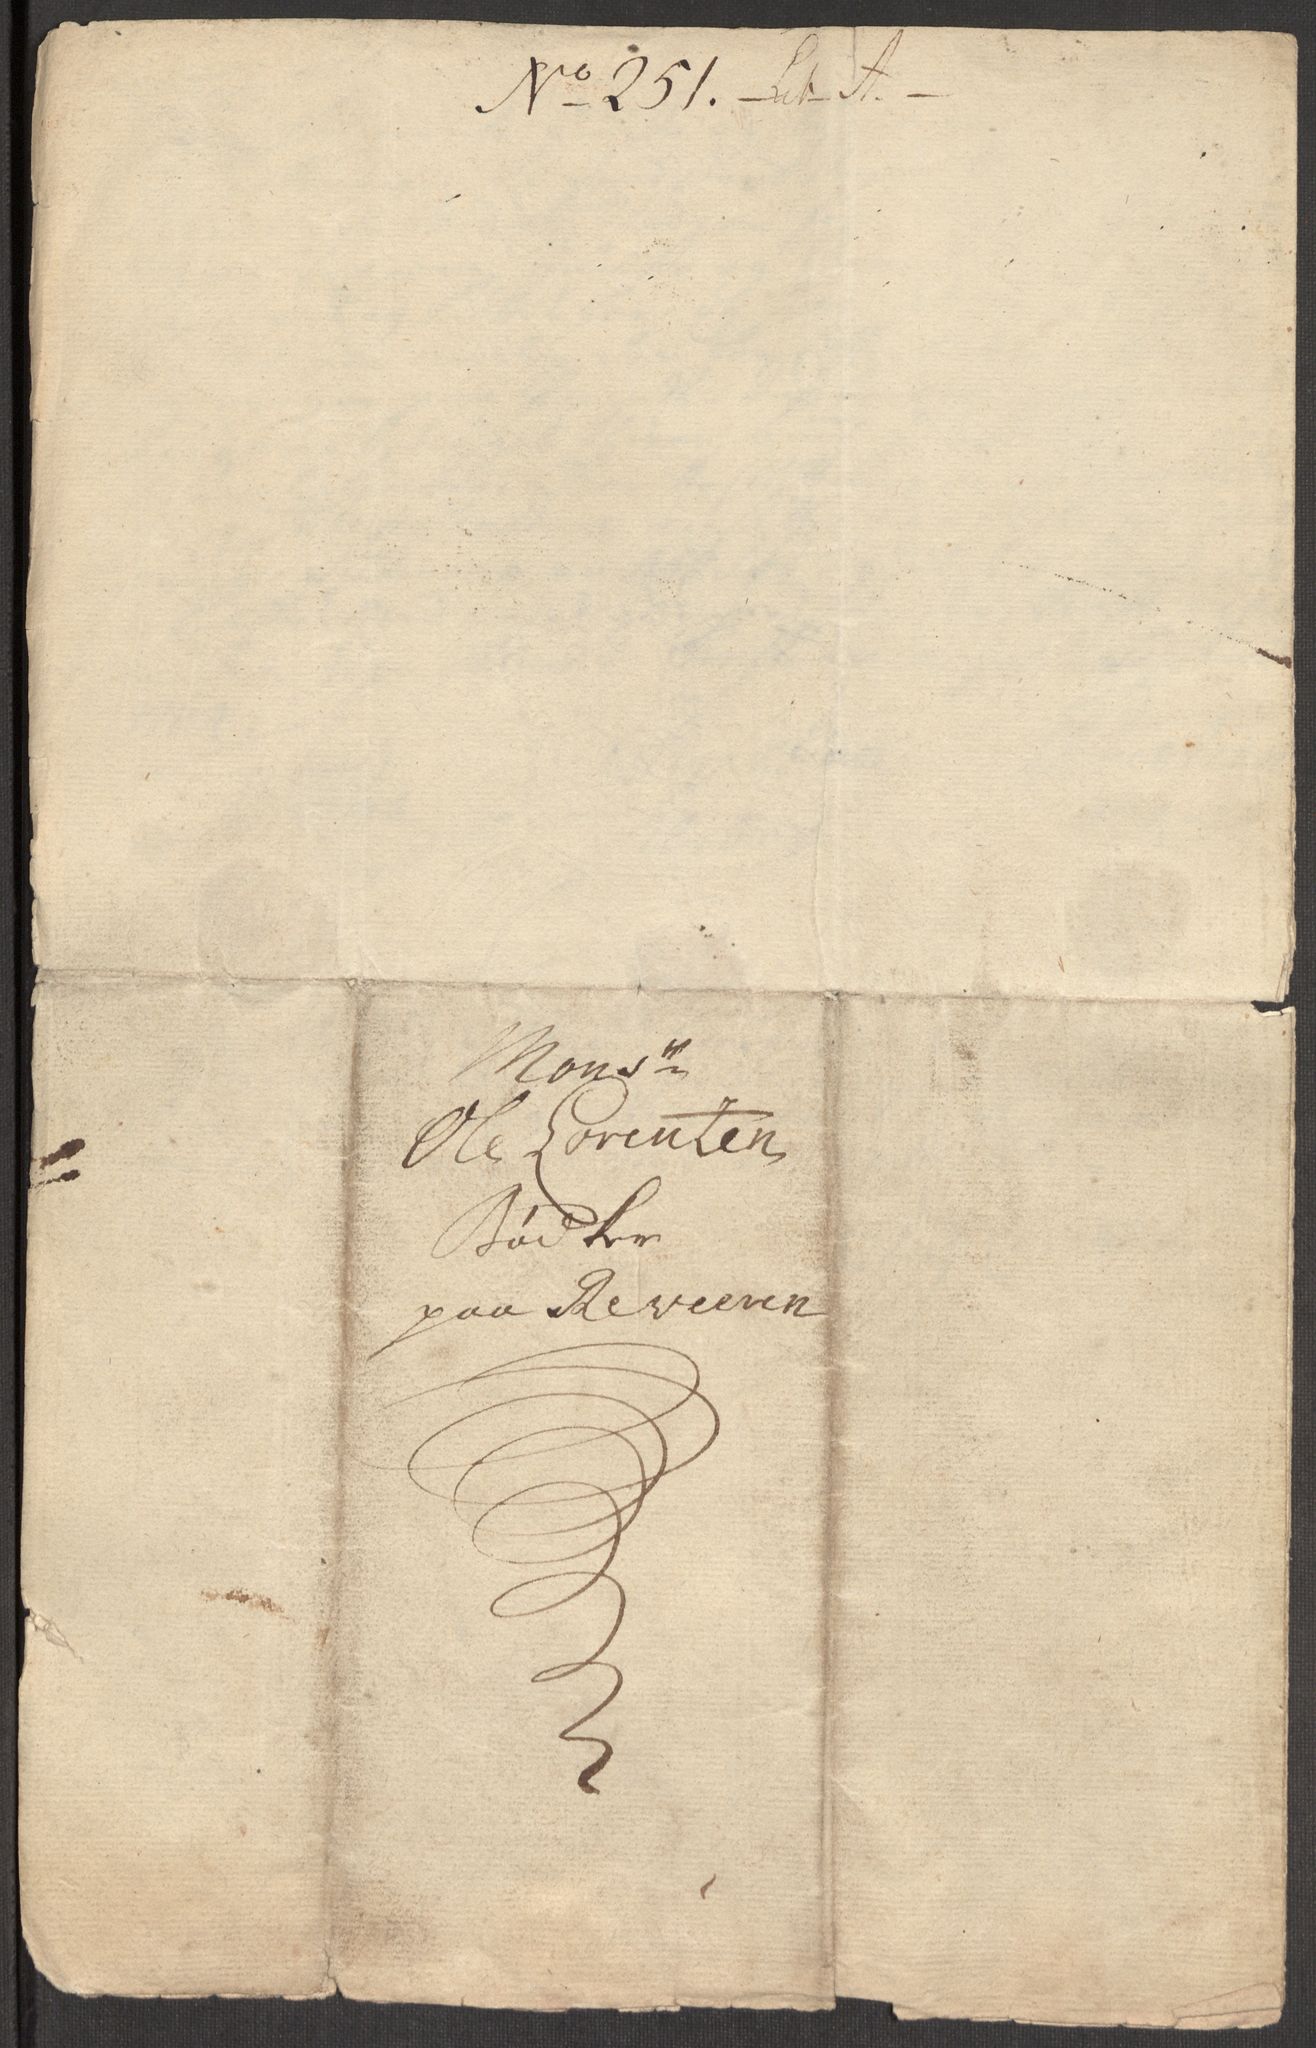 No 251. Lit A.
Monsr
Ole Lorentzen
Bødker
paa Reveeren